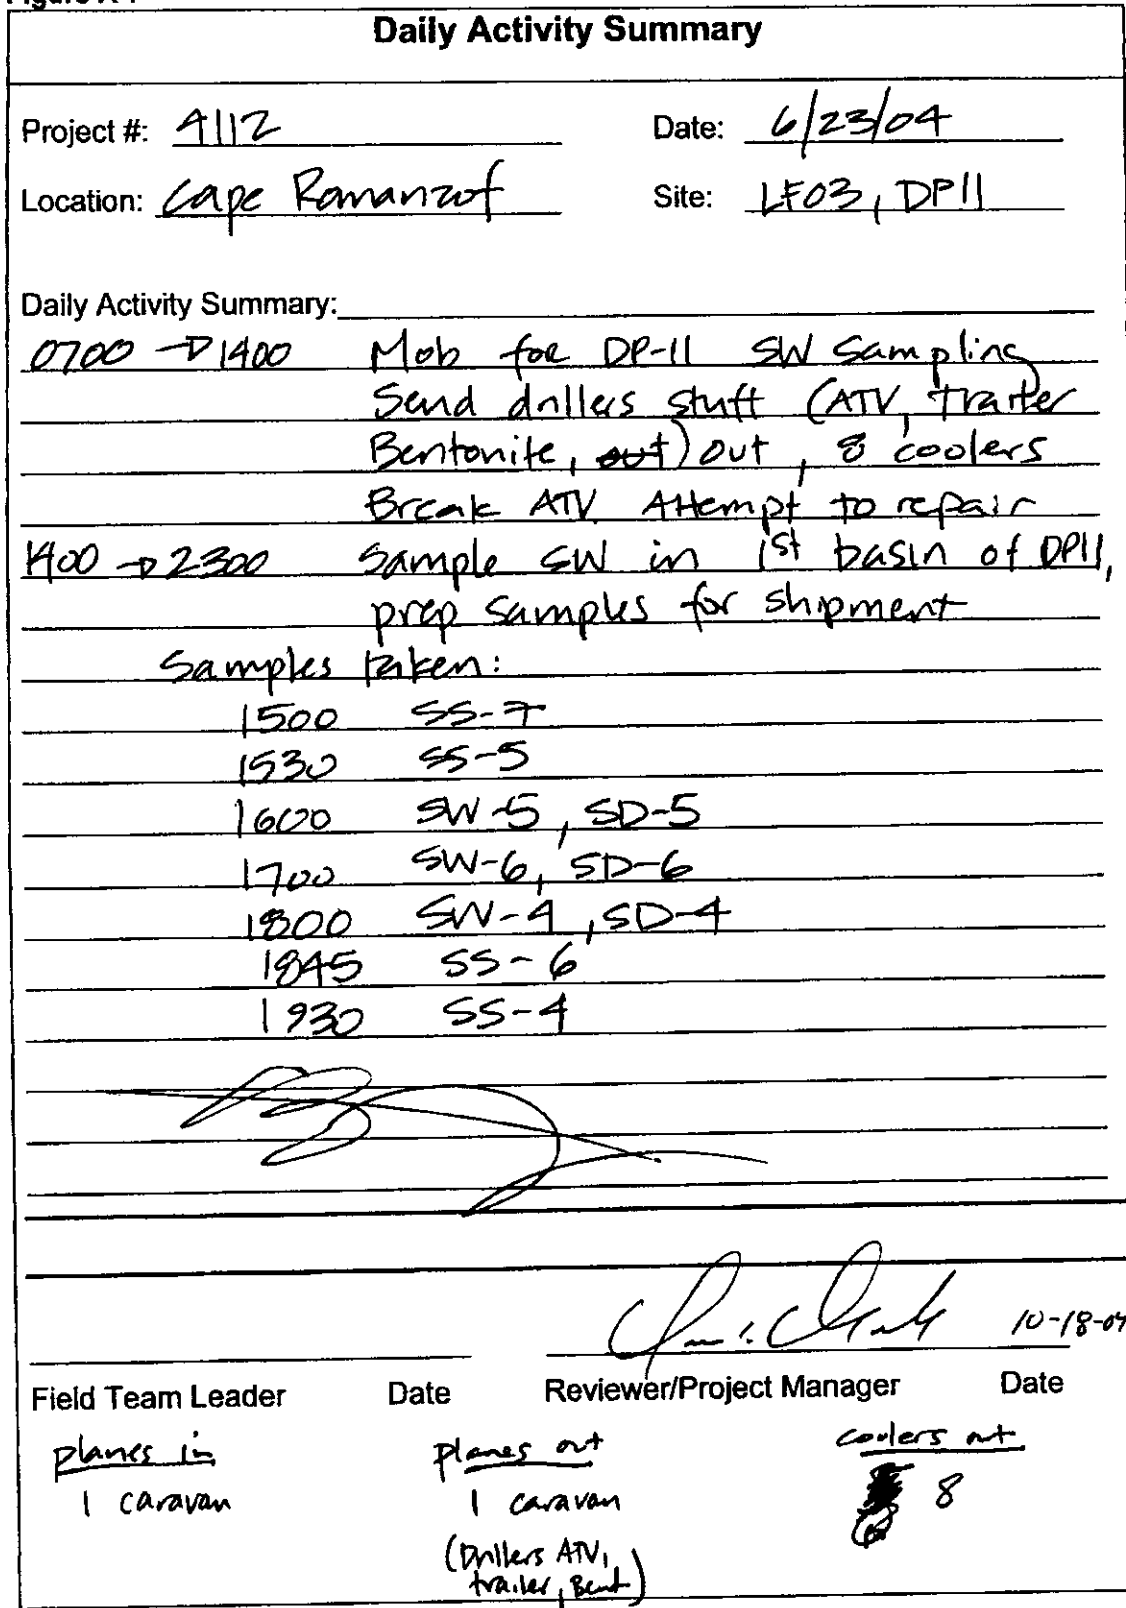 Daily Activity Summary
Project #: 4112 Date: 6/23/04
Location: Cape Romanzof Site: LF03, DP11
Daily Activity Summary:
0700 → 1400 Mob for DP-11 SW Sampling
Send drillers stuff (ATV, trailer
Bentonite, out) out, 8 coolers
Break ATV Attempt to repair
1400 → 2300 Sample SW in 1st basin of DP11,
prep samples for shipment
Samples taken:
1500 SS-7
1530 SS-5
1600 SW-5, SD-5
1700 SW-6, SD-6
1800 SW-4, SD-4
1845 SS-6
1930 SS-4
10-18-04
Field Team Leader Date Reviewer/Project Manager Date
planes in planes out coolers out
1 caravan 1 caravan 8
(Drillers ATV,
trailer, Bent)